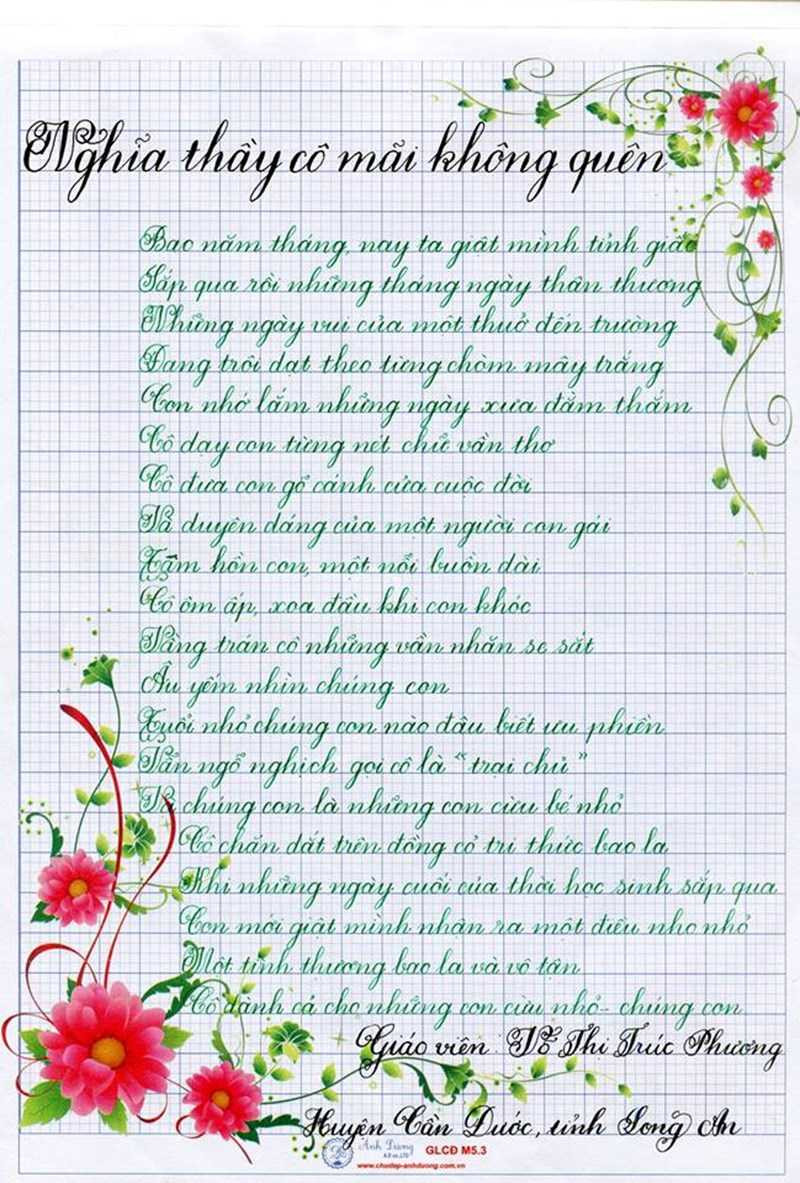 Nghĩa thầy cô mãi không quên
Bao năm tháng, nay ta giật mình tỉnh giấc
Sắp qua rồi những tháng ngày thân thương
Những ngày vui của một thuở đến trường
Đang trôi dạt theo từng chòm mây trắng
Con nhớ lắm những ngày xưa đằm thắm
Cô dạy con từng nét chữ vần thơ
Cô đưa con gõ cánh cửa cuộc đời
Và duyên dáng của một người con gái
Tâm hồn con, một nỗi buồn dài
Cô ôm ấp, xoa đầu khi con khóc
Vầng trán cô những vần nhăn se sắt
Âu yếm nhìn chúng con
Tuổi nhỏ chúng con nào đâu biết ưu phiền
Vẫn ngổ nghịch gọi cô là "trại chủ"
Và chúng con là những con cừu bé nhỏ
Cô chăn dắt trên đồng cỏ tri thức bao la
Khi những ngày cuối của thời học sinh sắp qua
Con mới giật mình nhận ra một điều nho nhỏ
Một tình thương bao la và vô tận
Cô dành cả cho những con cừu nhỏ- chúng con
Giáo viên : Võ Thi Trúc Phương
Huyện Cần Đước, tỉnh Long An
Ánh Dương
GLCĐ M5.3
www.chudep-anhduong.com.vn